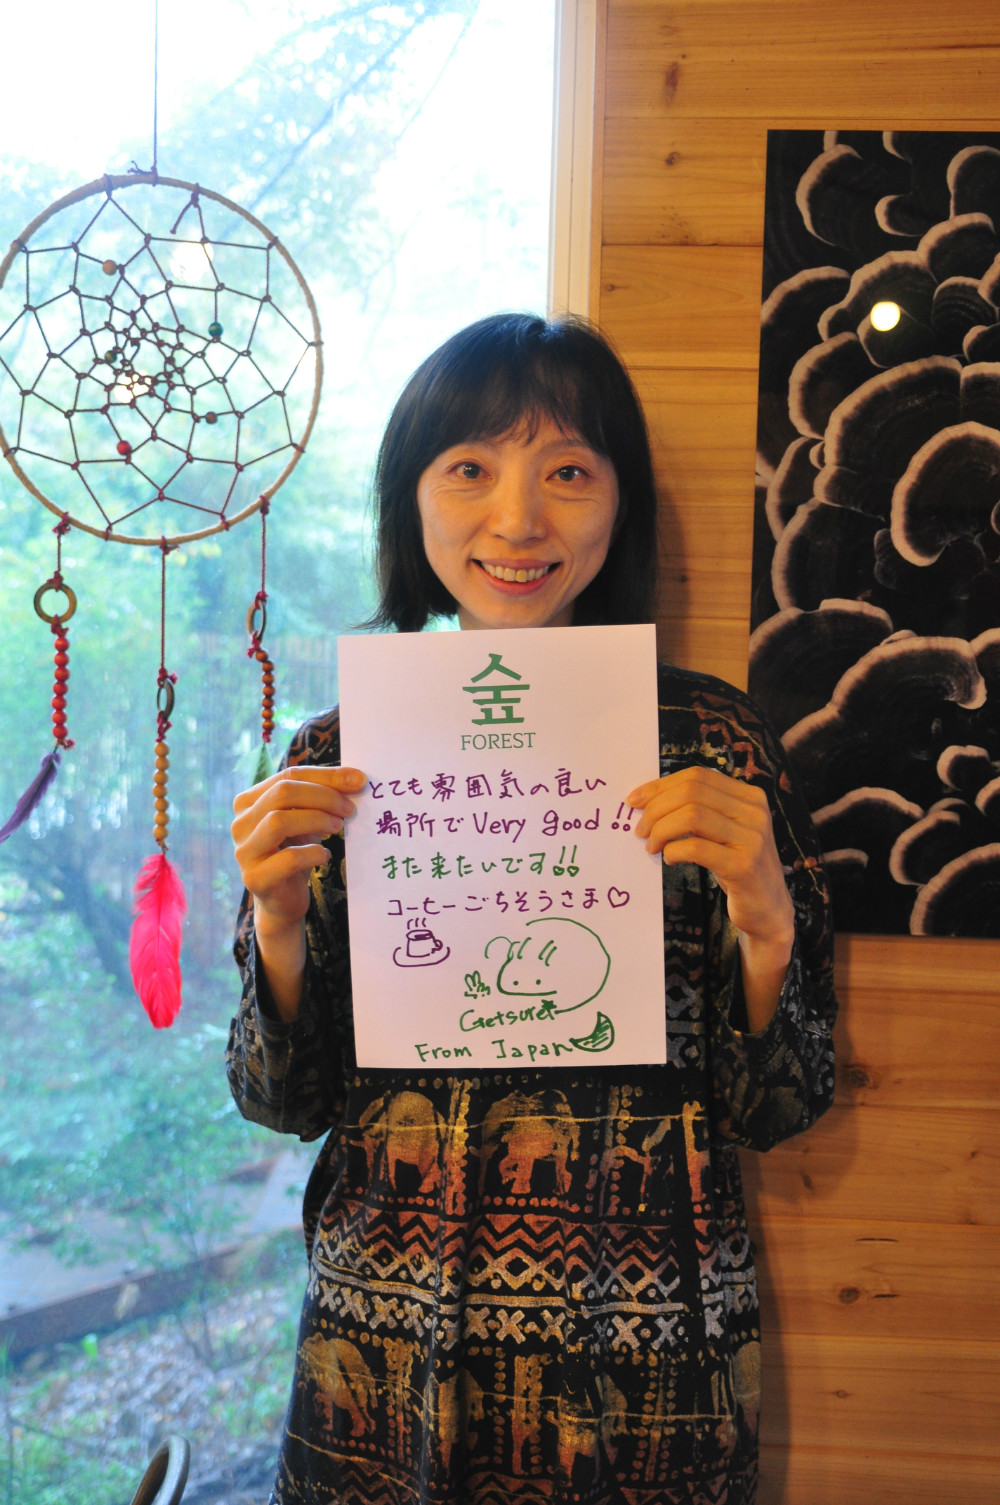 숲
FOREST
とても雰囲気の良い
場所で Very good!!
また来たいです!!
コーヒーごちそうさま♡
From Japan